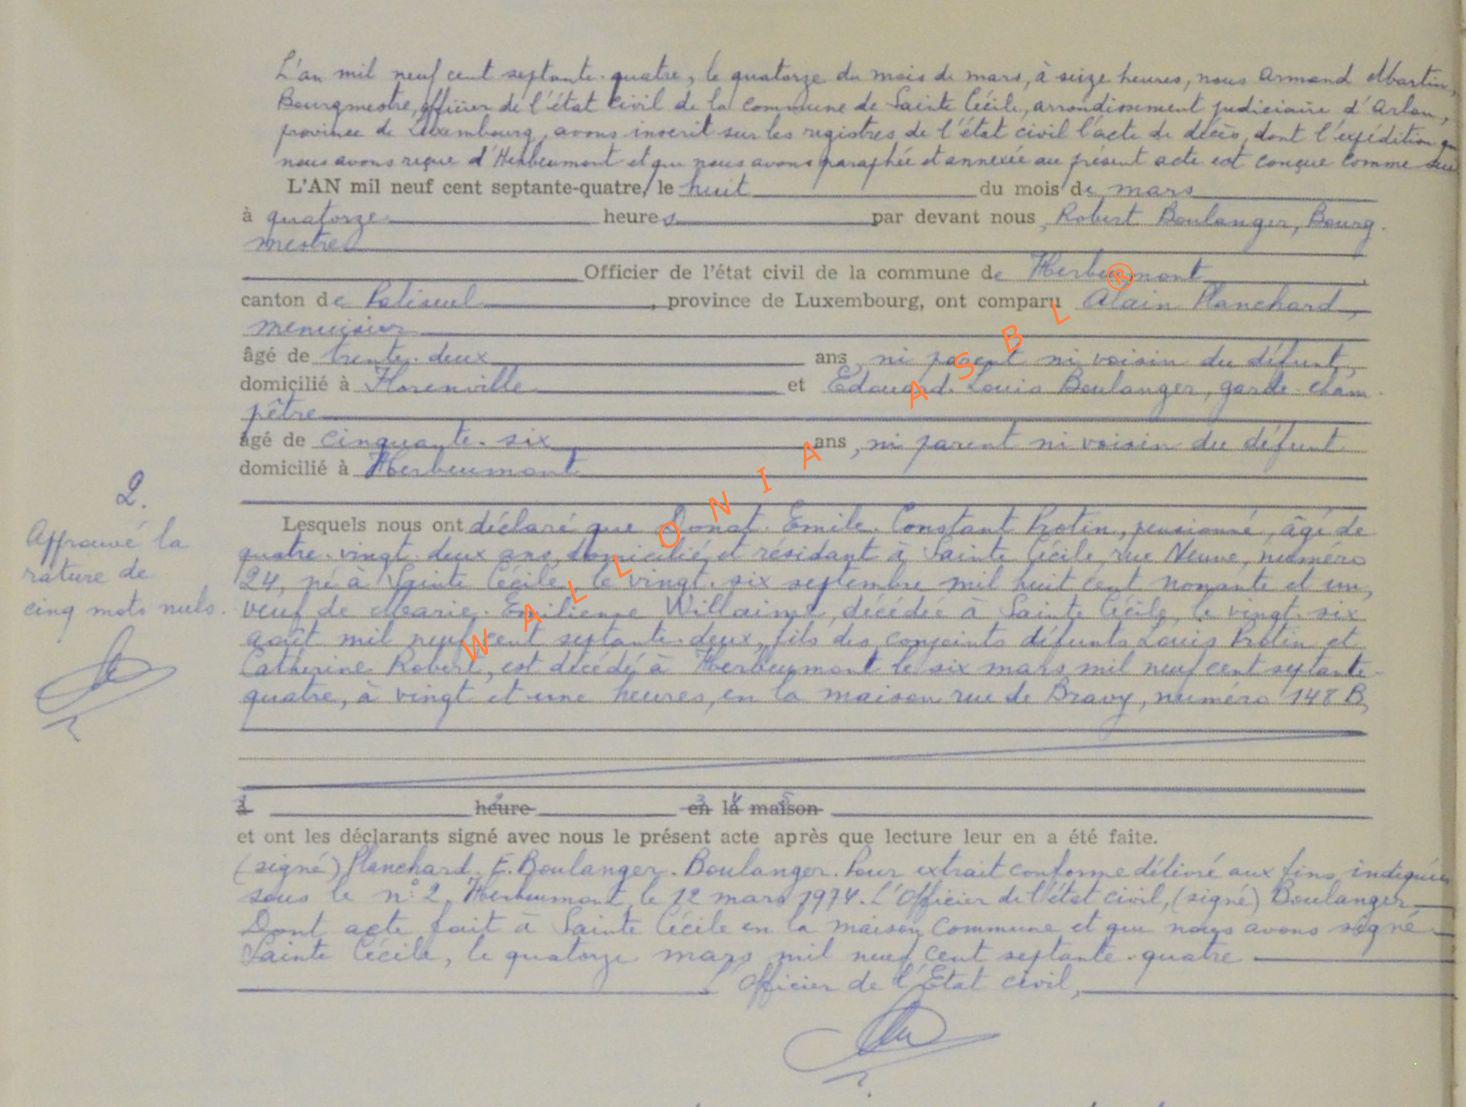 L'an mil neuf cent septante-quatre, le quatorze du mois de mars, à seize heures, nous Armand Martin,
Bourgmestre, officier de l'état civil de la commune de Sainte Cécile, arrondissement judiciaire d'Arlon,
province de Luxembourg, avons inscrit sur les registres de l'état civil l'acte de décès, dont l'expédition que
nous avons reçue d'Herbeumont et que nous avons paraphée et annexée au présent acte est conçue comme suit
L'AN mil neuf cent septante-quatre, le huit du mois de mars
à quatorze heures par devant nous, Robert Boulanger, Bourg-
mestre
Officier de l'état civil de la commune de Herbeumont
canton de Paliseul, province de Luxembourg, ont comparu Alain Planchard,
menuisier
âgé de trente-deux ans, ni parent ni voisin du défunt,
domicilié à Florenville et Edouard-Louis Boulanger, garde-cham-
pêtre
âgé de cinquante-six ans, ni parent ni voisin du défunt
domicilié à Herbeumont
Lesquels nous ont déclaré que Donat-Emile-Constant Protin, pensionné, âgé de
quatre-vingt-deux ans, domicilié et résidant à Sainte Cécile, rue Neuve, numéro
24, né à Sainte Cécile, le vingt-six septembre mil huit cent nonante et un,
veuf de Marie-Emilienne Willaime, décédée à Sainte Cécile, le vingt-six
août mil neuf cent septante-deux, fils des conjoints défunts Louis Protin et
Catherine Robert, est décédé à Herbeumont le six mars mil neuf cent septante-
quatre, à vingt et une heures, en la maison rue de Bravy, numéro 148 B,
à heure en la maison
1 2 3 4 5
et ont les déclarants signé avec nous le présent acte après que lecture leur en a été faite.
(signé) Planchard. E. Boulanger. Boulanger. Pour extrait conforme délivré aux fins indiquées
sous le n° 2, Herbeumont, le 12 mars 1974. L'Officier de l'état civil, (signé) Boulanger
Dont acte fait à Sainte Cécile en la maison commune et que nous avons signé
Sainte Cécile, le quatorze mars mil neuf cent septante-quatre
L'Officier de l'Etat civil,
2.
Approuvé la
rature de
cinq mots nuls.
WALLONIA ASBL ®